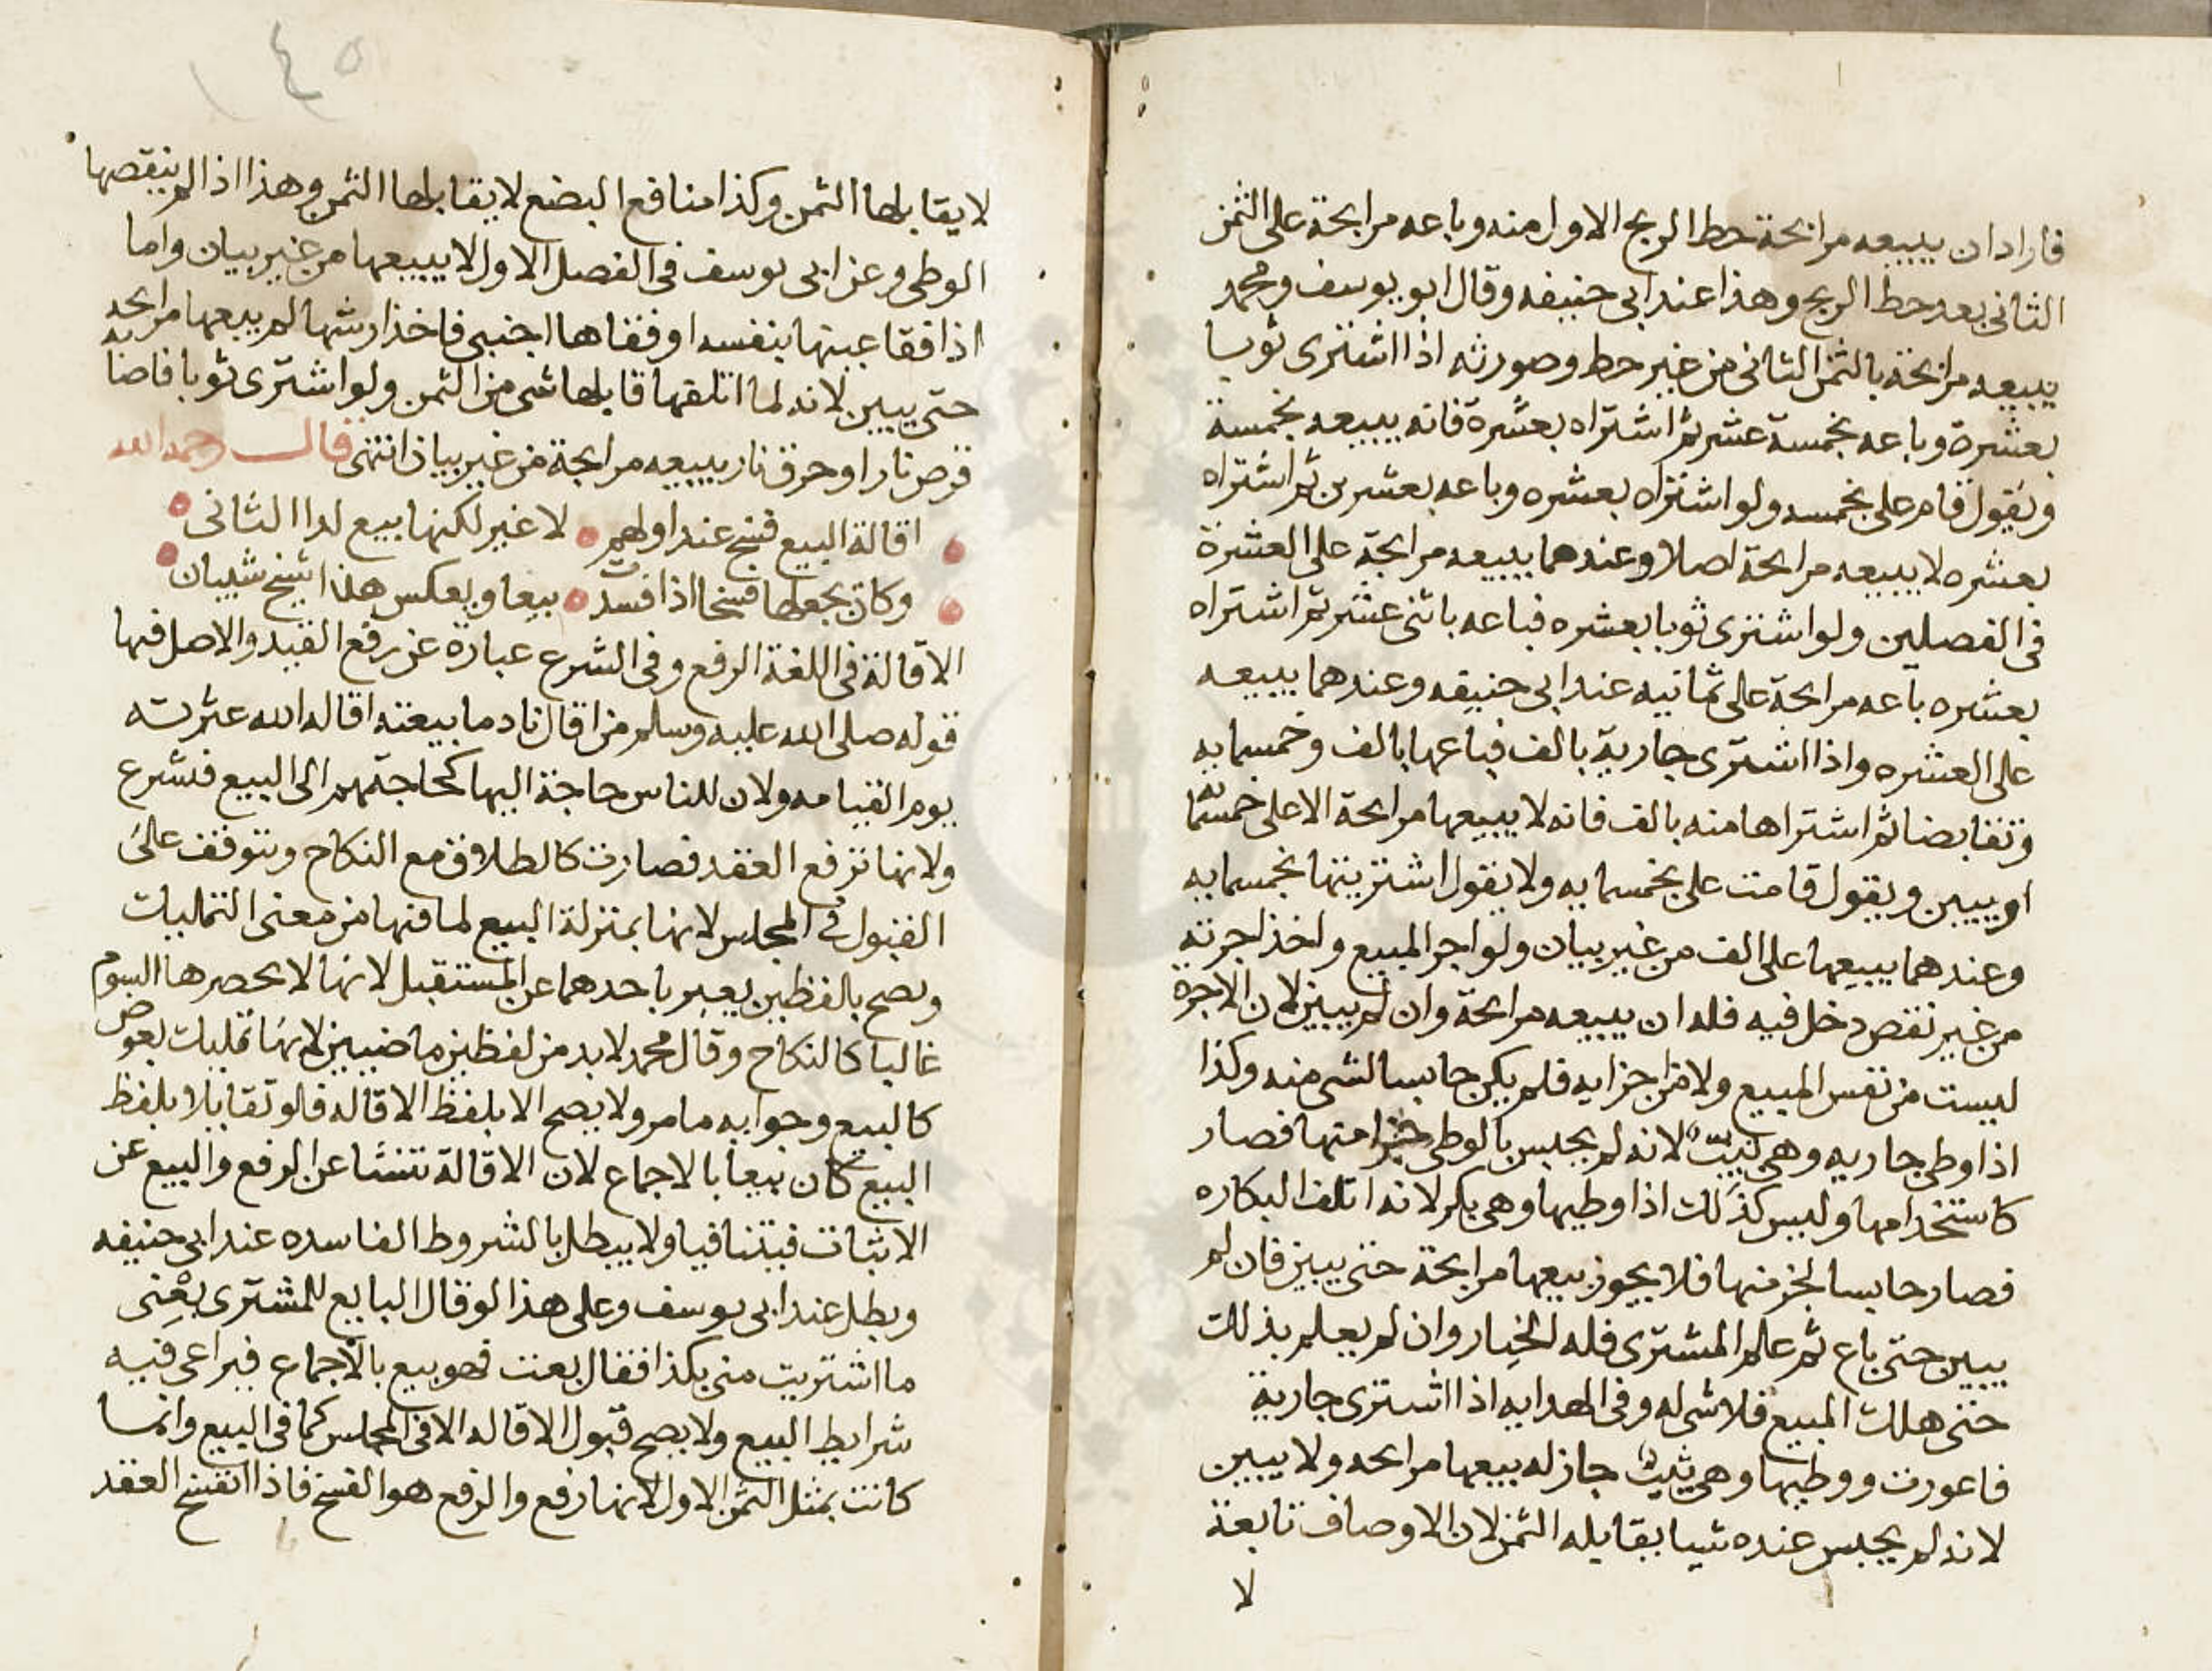 فاراد ان يبيعه مرابحة حط الربح الاول منه وباعه مرابحة على الثمن
الثانى بعد حط الربح وهذا عند ابى حنيفه وقال ابو يوسف ومحمد
يبيعه مرابحة بالثمن الثانى من غير حط وصورته اذا اشترى ثوبا
بعشرة وباعه بخمسة عشر ثم اشتراه بعشرة فانه يبيعه بخمسة
ويقول قام على بخمسه ولو اشتراه بعشره وباعه بعشرين ثم اشتراه
بعشره لا يبيعه مرابحة اصلا وعندهما يبيعه مرابحة على العشرة
فى الفصلين ولو اشترى ثوبا بعشره فباعه باثنى عشر ثم اشتراه
بعشره باعه مرابحة على ثمانيه عند ابى حنيفه وعندهما يبيعه
على العشره واذا اشترى جارية بالف فباعها بالف وخمسمايه
وتقابضا ثم اشتراها منه بالف فانه لا يبيعها مرابحة الا على خمسمايه
او يبين ويقول قامت على بخمسمايه ولا يقول اشتريتها بخمسمايه
وعندهما يبيعها على الف من غير بيان ولو اجر المبيع واخذ اجرته
من غير نقص دخل فيه فله ان يبيعه مرابحة وان لم يبين لان الاجره
ليست من نفس المبيع ولا من اجزايه فلم يكن حابسا لشى منه وكذا
اذا وطى جاريه وهى ثيب لانه لم يحبس بالوطى جزا منها فصار
كاستخدامها وليس كذلك اذا وطيها وهى بكر لانه اتلف البكاره
فصار حابسا لجز منها فلا يجوز بيعها مرابحة حتى يبين فان لم
يبين حتى باع ثم علم المشترى فله الخيار وان لم يعلم بذلك
حتى هلك المبيع فلا شى له وفى الهدايه اذا اشترى جارية
فاعورت ووطيها وهى ثيب جاز له بيعها مرابحه ولا يبين
لانه لم يحبس عنده شيا يقابله الثمن لان الاوصاف تابعة
لا
١٤٥
لا يقابلها الثمن وكذا منافع البضع لا يقابلها الثمن وهذا اذا لم ينقصها
الوطى وعن ابى يوسف فى الفصل الاول لا يبيعها من غير بيان واما
اذا فقا عينها بنفسه او فقاها اجنبى فاخذ ارشها لم يبيعها مرابحه
حتى يبين لانه لما اتلفها قابلها شى من الثمن ولو اشترى ثوبا فاصابه
قرض نار او حرق نار يبيعه مرابحة من غير بيان انتهى قال رحمه الله
اقالة البيع فسخ عند اولهم لا غير لكنها بيع لدا الثانى
وكان يجعلها فسخا اذا فسدت بيعا وبعكس هذا شيخ شيبان
الاقالة فى اللغة الرفع وفى الشرع عبارة عن رفع القيد والاصل فيها
قوله صلى الله عليه وسلم من اقال نادما بيعته اقاله الله عثرته
يوم القيامه ولان للناس حاجة اليها كحاجتهم الى البيع فشرع
ولانها ترفع العقد فصارت كالطلاق مع النكاح وتتوقف على
القبول فى المجلس لانها بمنزلة البيع لما فيها من معنى التمليات
ويصح بالفظين يعبر باحدهما عن المستقبل لانها لا يحصرها السوم
غالبا كالنكاح وقال محمد لابد من لفظين ماضيين لانها تمليات بعوض
كالبيع وجوابه ما مر ولا يصح الا بلفظ الاقاله فلو تقابلا بلفظ
البيع كان بيعا بالاجماع لان الاقالة تنشا عن الرفع والبيع عن
الاثبات فيتنافيا ولا يبطل بالشروط الفاسده عند ابى حنيفه
ويطل عند ابى يوسف وعلى هذا لو قال البايع للمشترى بعنى
ما اشتريت منى بكذا فقال بعت فهو بيع بالاجماع فيراعى فيه
شرايط البيع ولا يصح قبول الاقاله الا فى المجلس كما فى البيع وانما
كانت بمثل الثمن الاول لانها رفع والرفع هو الفسخ فاذا انفسخ العقد